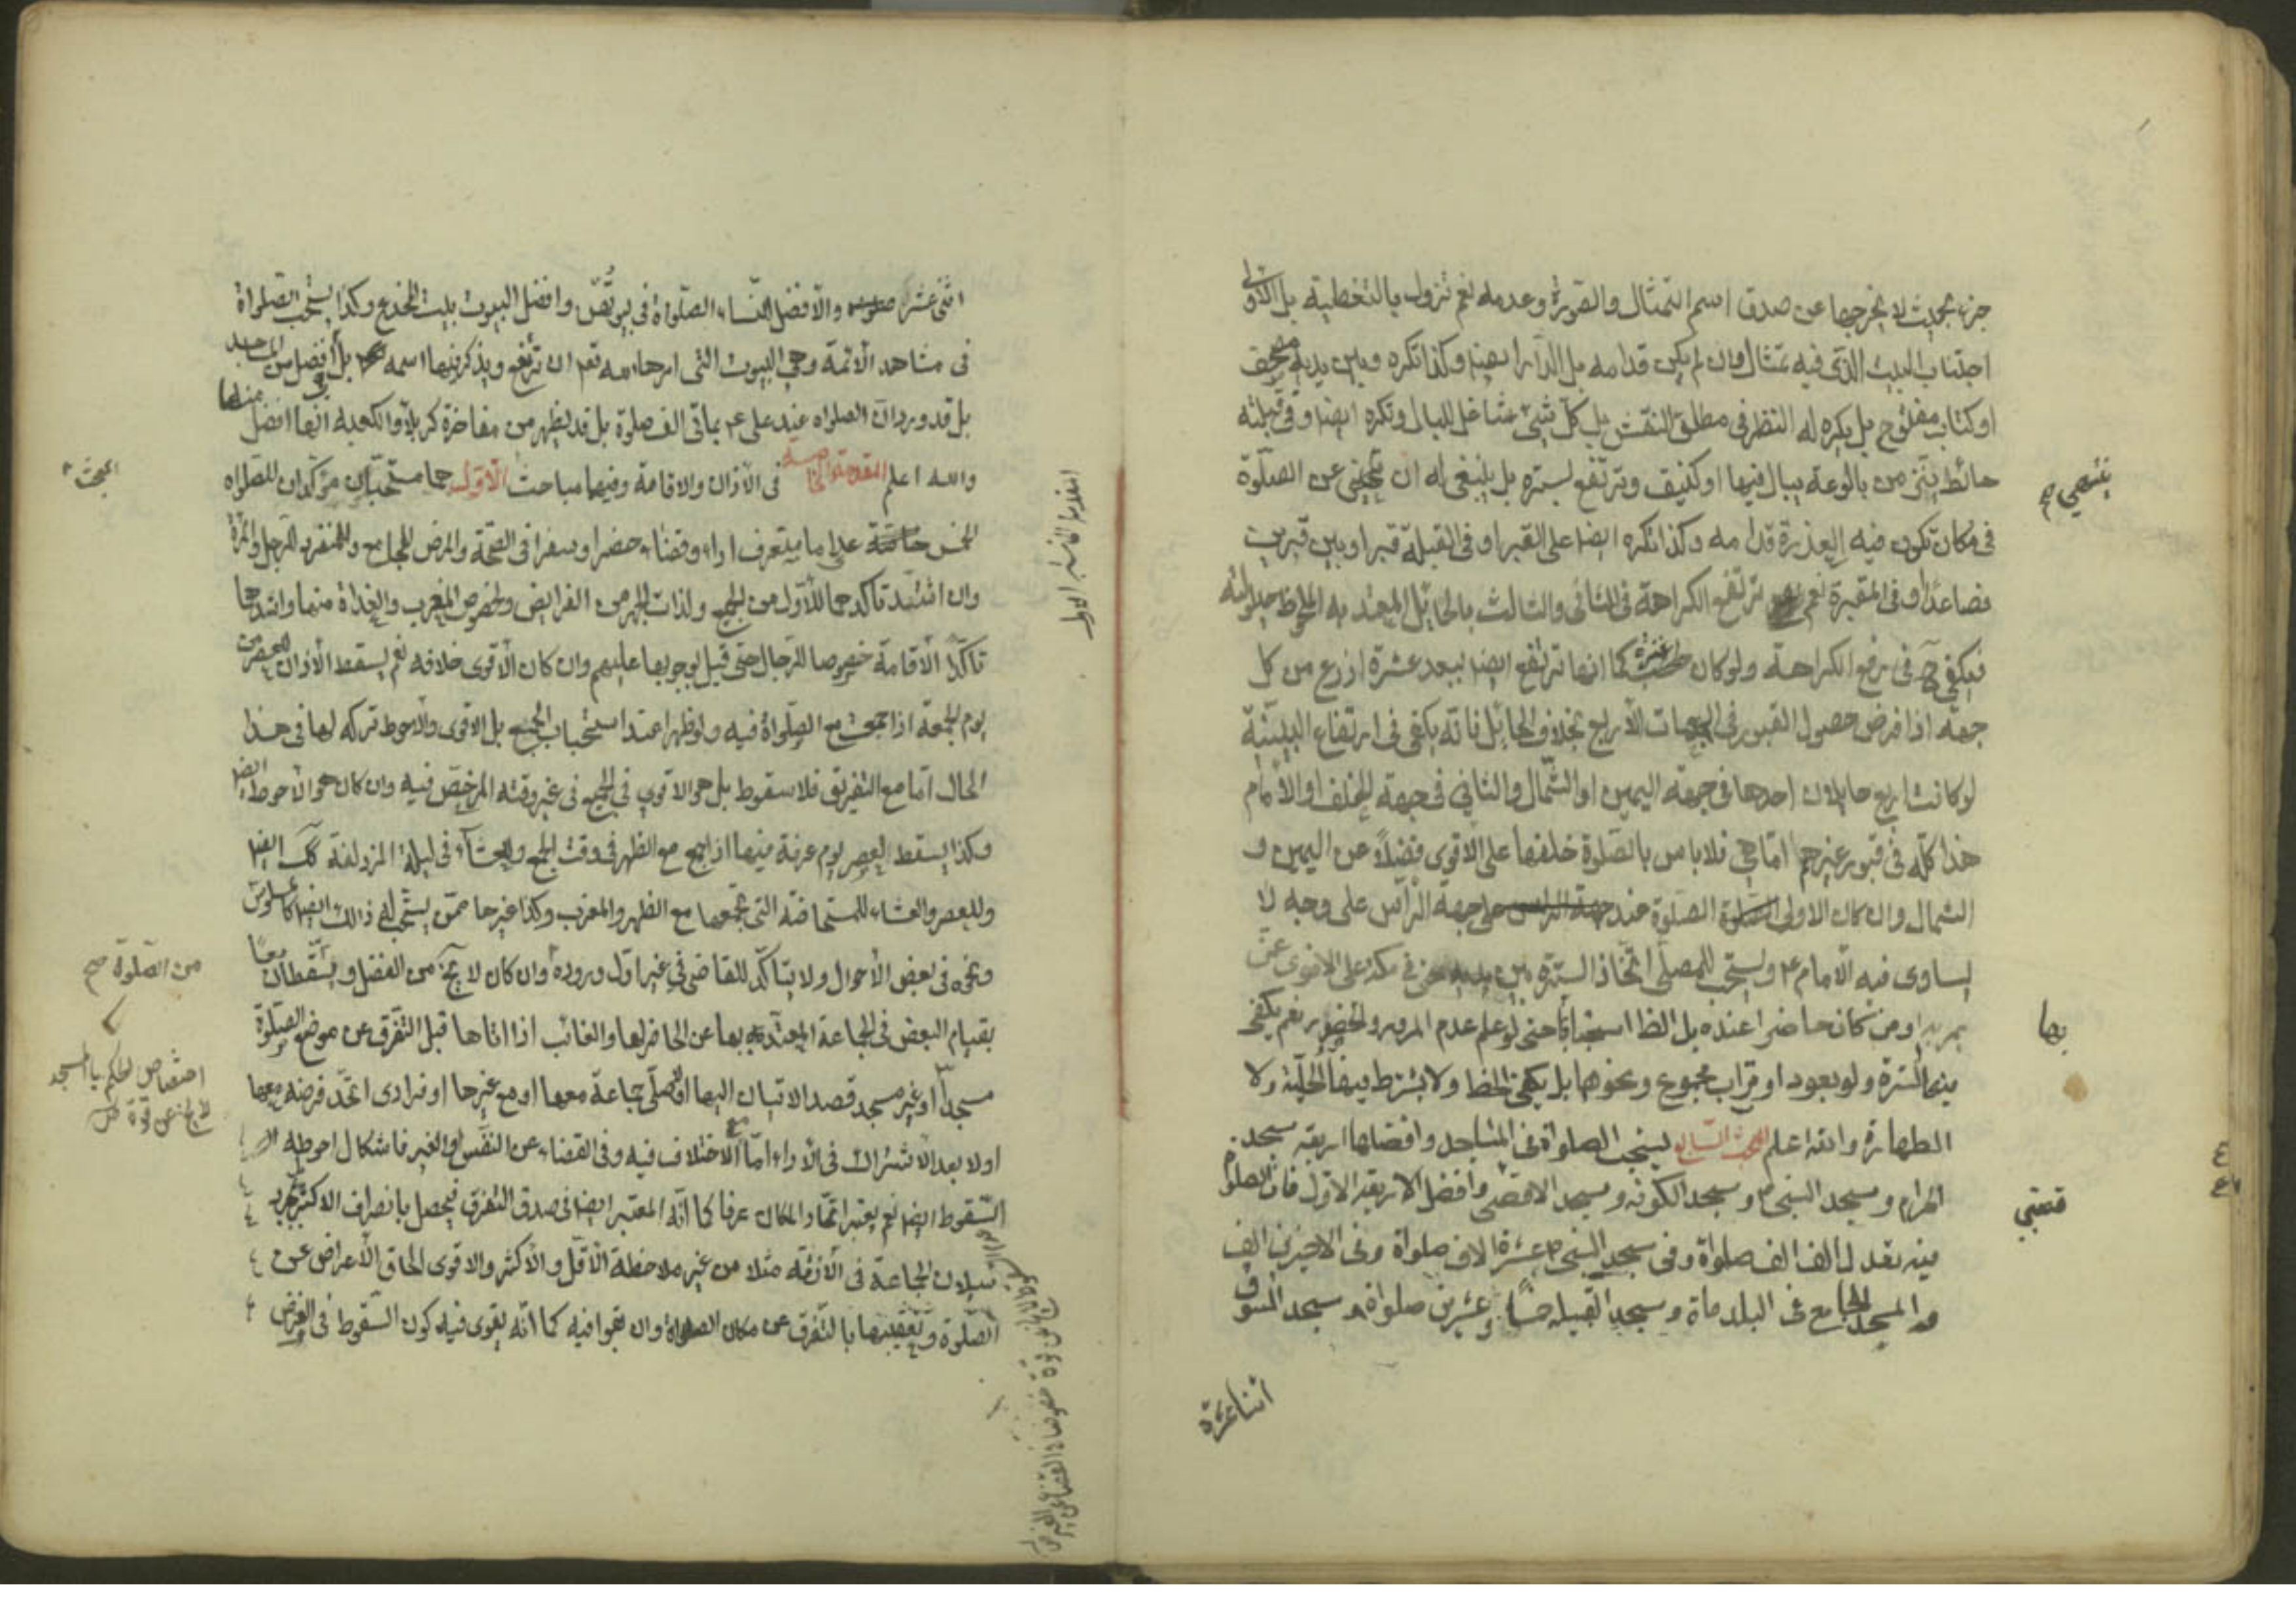 جزء بحيث لا يخرجها عن صدق اسم التمثال والصورة وعدمه نعم تزول بالتغطية بل الاولى
اجتناب البيت الذي فيه تمثال وان لم يكن قدامه بل الدار ايضا وكذا تكره وبين يديه مصحف
او كتاب مفتوح بل يكره له النظر في مطلق النقش بل كل شيء شاغل للبال وتكره ايضا وفي قبلته
حائط ينز من بالوعة يبال فيها او كنيف وترتفع بستره بل ينبغي له ان عن الصلوة
ينتحي صح
في مكان تكون فيه العذرة قدامه وكذا تكره ايضا على القبر او في القبلة قبر او بين قبرين
فصاعدا او في المقبرة نعم ترتفع الكراهة في الثاني والثالث بالحائل المعتد به الملحوظ
فيكفي ح في رفع الكراهة ولو كان عنزة كما انها ترتفع ايضا ببعد عشرة اذرع من كل
جهة اذا فرض حصول القبور في الجهات الأربع بخلاف الحائل فانه يكفي في ارتفاع البينية
لو كانت اربع حايلان احدها في جهة اليمين او الشمال والثاني في جهة الخلف او الأمام
هذا كله في قبور غيرهم اما هي فلا باس بالصلوة خلفها على الاقوى فضلاً عن اليمين و
الشمال وان كان الاولى الصلوة عند جهة الرأس على وجه لا
يساوى فيه الأمام ع ويستحب للمصلي اتخاذ السترة بين يديه في مكة على الاقوى عمن
يمر بها او من كان حاضرا عنده بل الظ استحبابها حتى لو علم عدم المرور والحضور نعم يكفي
بها
منها السترة ولو بعود او تراب مجموع ونحوها بل يكفي الخط ولا يشترط فيها الحلية ولا
الطهارة والله اعلم المبحث السابع يستحب الصلواة في المساجد وافضلها اربعة مسجد
الحرام ومسجد النبي ص ومسجد الكوفة ومسجد الاقصى وأفضل الاربعة الاول فان الصلوة
فيه تعدل الف الف صلواة وفي مسجد النبي ص عشرة الاف صلواة وفي الاخيرين الف
والمسجد الجامع في البلد مأة ومسجد القبيلة خمسًا وعشرين صلواة ومسجد السوق
اثنا عشرة
اثنى عشر والأفضل للنساء الصلواة في بيوتهن وافضل البيوت بيت المخدع وكذا يستحب الصلواة
في مشاهد الأئمة وهي البيوت التي امر الله تع ان ترفع ويذكر فيها اسمه بل أفضل من المساجد
بل قد ورد ان الصلواة عند علي ع بمأتي الف صلوة بل قد يظهر من مفاخرة كربلا والكعبة انها افضل منها
والله اعلم المقدمة الخامسة في الأذان والاقامة وفيها مباحث الأول هما مستحبان مؤكدان للصلواة
الخمس خاصة على ما يتعرف اداء وقضاء حضرا وسفرا في الصحة والمرض للجامع وللمنفرد للرجل والمرأة
وان اشتد تأكدهما للأول من الجميع ولذات الجهر من الفرائض ولخصوص المغرب والغداة منها واشدهما
تأكدًا الأقامة خصوصا للرجال حتى قيل بوجوبها عليهم وان كان الأقوى خلافه نعم يسقط الأذان للعصر من
يوم الجمعة اذا جمعت مع الصلواة فيه ولو ظهرا عند استحباب الجمع بل الاقوى والأحوط تركه لها في هذا
الحال اما مع التفريق فلا سقوط بل هو الاقوى في الجمع في غير وقته المرخص فيه وان كان هو الأحوط ايضا
وكذا يسقط لعصر يوم عرفة فيها اذا جمع مع الظهر في وقت الجمع ولعشاء في ليلة المزدلفة كك ايضا
وللعصر والعشاء للمستحاضة التي تجمعها مع الظهر والمغرب وكذا غيرها ممن يستحب له ذلك ايضا كالمسلوس
ونحوه في بعض الأحوال ولا يتأكد للقاضي في غير اول وروده وان كان لا يخ من الفضل ويسقطان معا
من الصلوة صح
بقيام البعض في الجماعة المعتد بها عن الحاضر لها والغائب اذا اتاها قبل التفرق عن موضع الصلوة
مسجدا او غير مسجد قصد الاتيان اليها او صلى جماعة معها او مع غيرها او فرادى اتحد فرضه معها
اختصاص الحكم بالمسجد
لا يخ عن قوة
او لا بعد الاشتراك في الأداء اما الاختلاف فيه وفي القضاء عن النفس او الغير فاشكال احوطه
السقوط ايضا نعم يعتبر اتحاد المكان عرفا كما انه المعتبر ايضا في صدق التفرق فيحصل بانصراف الاكثر
الجماعة في الأزقة مثلا من غير ملاحظة الأقل والأكثر والاقوى الحاق الأعراض عن
الصلوة وتعقيبها بالتفرق عن مكان الصلواة وان بقوا فيه كما انه يقوى فيه كون السقوط في الفرض